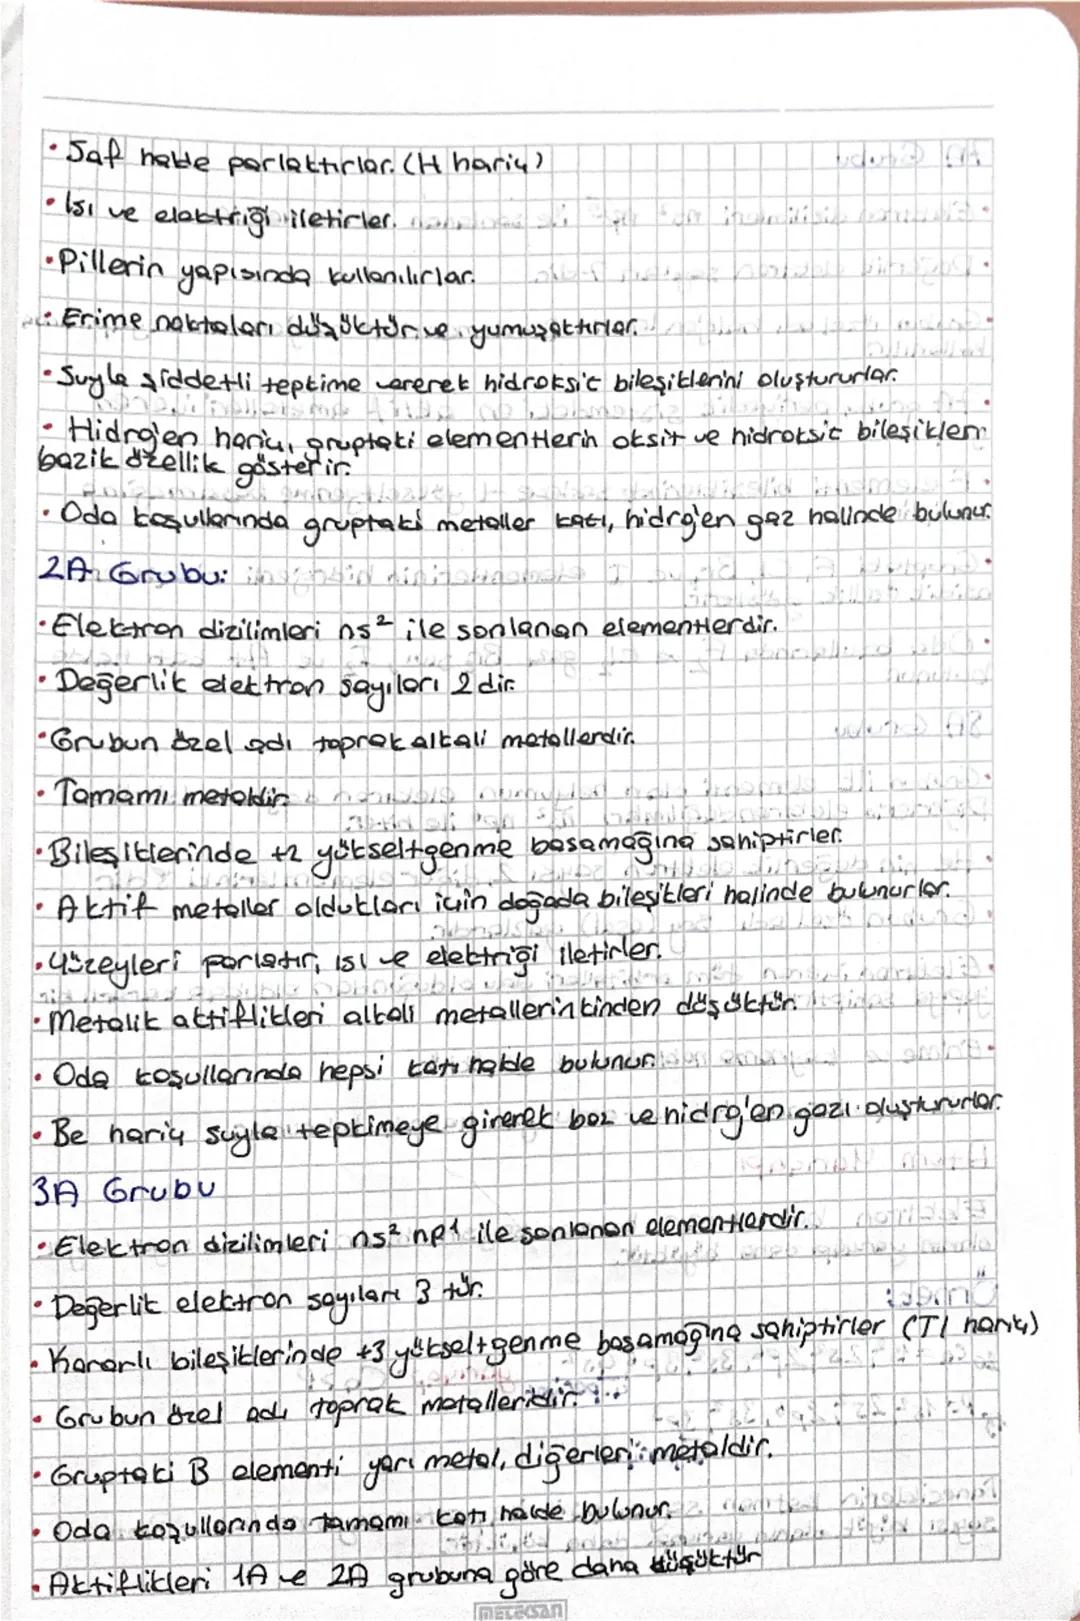 • Saf halde parlaktırlar. (H hariç)
• Isı ve elektriği iletirler.
• Pillerin yapısında kullanılırlar.
• Erime noktaları düşüktür ve yumuşaktırlar.
• Suyla şiddetli tepkime vererek hidroksit bileşiklerini oluştururlar.
• Hidrojen hariç, gruptaki elementlerin oksit ve hidroksit bileşikleri
bazik özellik gösterir.
• Oda koşullarında gruptaki metaller katı, hidrojen gaz halinde bulunur.
2A Grubu:
• Elektron dizilimleri ns² ile sonlanan elementlerdir.
• Değerlik elektron sayıları 2 dir.
• Grubun özel adı toprak alkali metallerdir.
• Tamamı metaldir.
• Bileşiklerinde +2 yükseltgenme basamağına sahiptirler.
• Aktif metaller oldukları için doğada bileşikleri halinde bulunurlar.
• Yüzeyleri parlaktır, ısı ve elektriği iletirler.
• Metalik aktiflikleri alkali metallerinkinden düşüktür.
• Oda koşullarında hepsi katı halde bulunur.
• Be hariç suyla tepkimeye girerek baz ve hidrojen gazı oluştururlar.
3A Grubu
• Elektron dizilimleri ns² np¹ ile sonlanan elementlerdir.
• Değerlik elektron sayıları 3 tür.
• Kararlı bileşiklerinde +3 yükseltgenme basamağına sahiptirler (Tl hariç)
• Grubun özel adı toprak metalleridir.
• Gruptaki B elementi yarı metal, diğerleri metaldir.
• Oda koşullarında tamamı katı halde bulunur.
• Aktiflikleri 1A ve 2A grubuna göre daha düşüktür
MELEKSAN